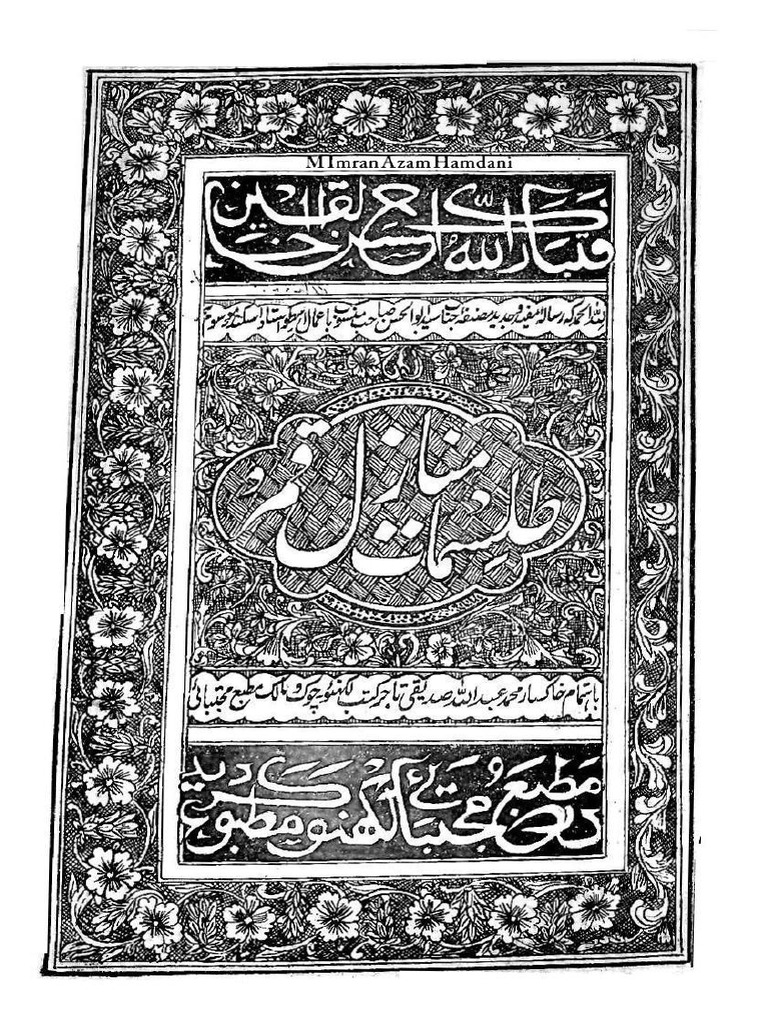 M Imran Azam Hamdani
فتبارک اللہ احسن الخالقین
للہ الحمد کہ رسالہ مفید و جدید مصنفہ جناب سید ابوالحسن صاحب منسوب باعمال حکیم استاد اسکندر موسوم بہ
طلسمات منازل قمر
باہتمام خاکسار محمد عبد اللہ صدیقی تاجر کتب لکھنؤ چوک و مالک مطبع مجتبائی
در مطبع مجتبائی لکھنو مطبوع گردید